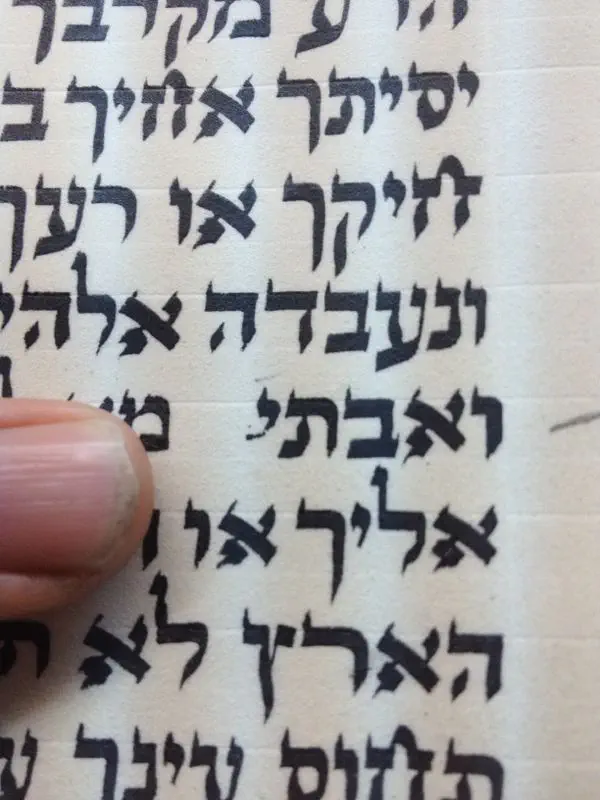 הרע מקרבך
יסיתך אחיך ב
חיקך או רעך
ונעבדה אלהי
ואבתי
אליך או
הארץ לא ת
תחוס עינך ע